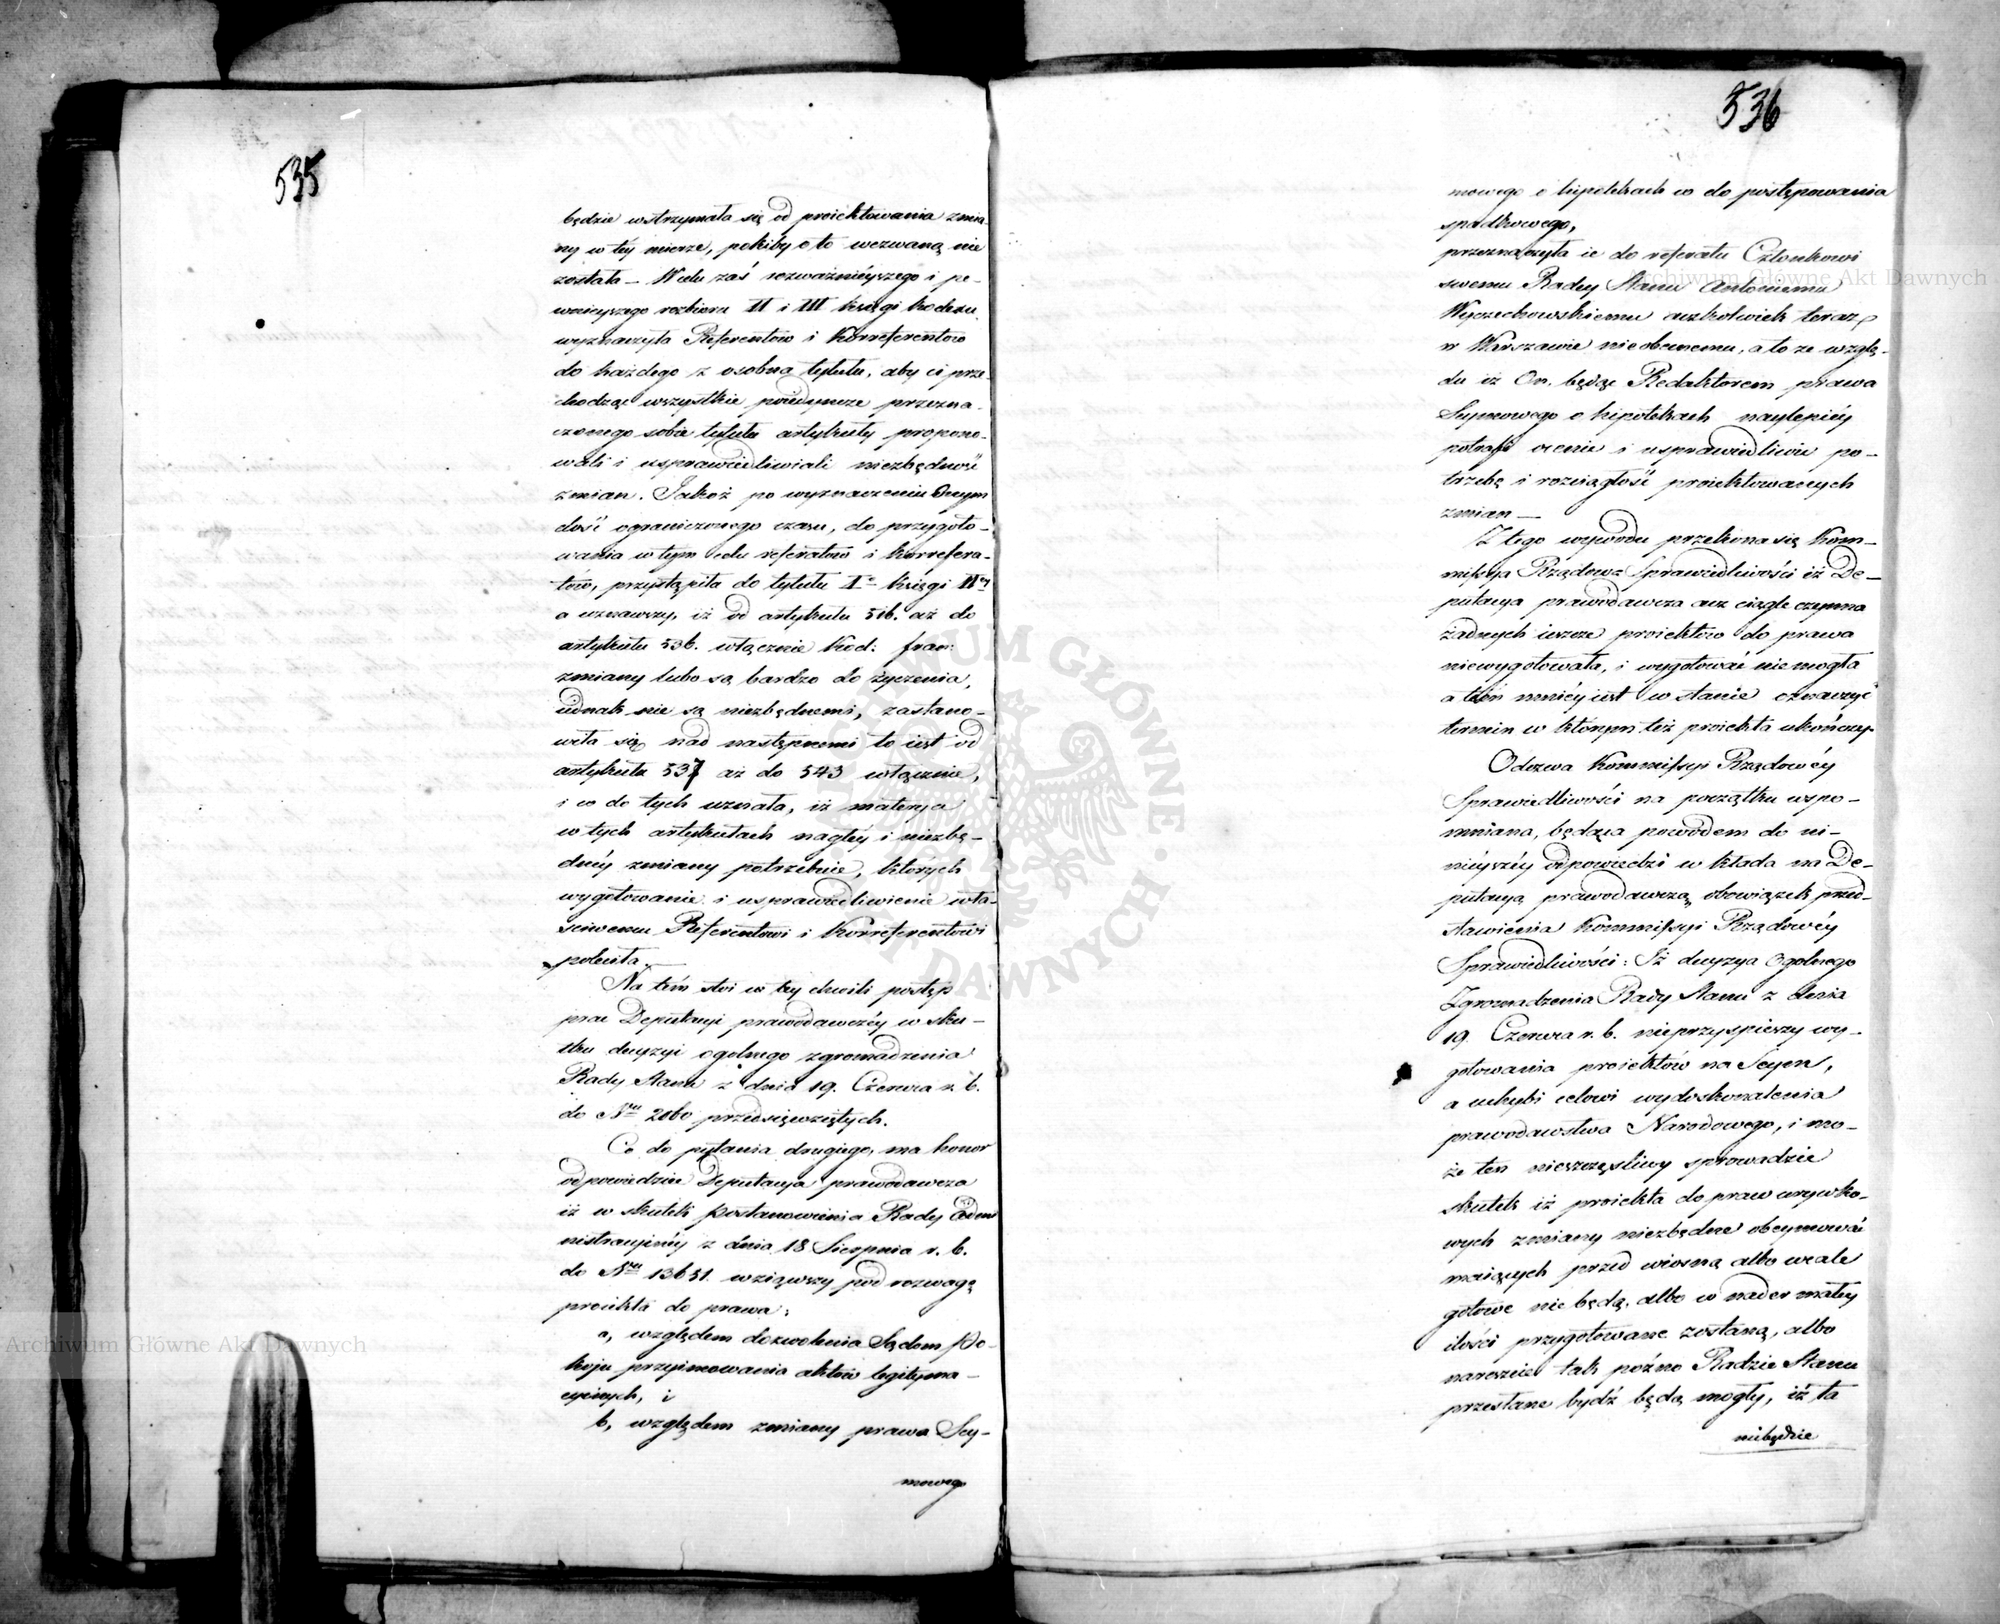 535
będzie wstrzymała się od proiektowania zmia-
ny w téy mierze, pokiby o to wezwaną nie
została — W celu zaś rozważniéyszego i pe-
wnieyszego rozbioru II i III księgi kodexu
wyznaczyła Referentów i Korreferentów
do każdego z osobna tytułu, aby ci prze-
chodząc wszystkie poiedyncze przezna-
czonego sobie tytułu artykuły propono-
wali i usprawiedliwiali niezbędność
zmian. Jakoż po wyznaczeniu
dość ograniczonego czasu, do przygoto-
wania w tym celu referatów i korrefera-
tów, przystąpiła do tytułu I° księgi IIéy
a uznawszy, iż od artykułu 516. aż do
artykułu 536. włącznie Kod: fran:
zmiany lubo są bardzo do życzenia,
iednak nie są niezbędnemi, zastano-
wiła się nad następnemi to iest od
artykułu 537 aż do 543 włącznie,
i co do tych uznała, iż materya
w tych artykułach nagłéy i niezbę-
dnéy zmiany potrzebuie, których
wygotowanie i usprawiedliwienie wła-
ściwemu Referentowi i Korreferentowi
poleciła. —
Na tém stoi w tey chwili postęp
prac Deputacyi prawodawczéy w sku-
tku decyzyi ogolnego zgromadzenia
Rady Stanu z dnia 19. Czerwca r. b.
do Nru 2060 przedsięwziętych.
Co do pytania drugiego, ma honor
odpowiedzieć Deputacya prawodawcza
iż w skutek postanowienia Rady Admi
nistracyinéy z dnia 18 Sierpnia r. b.
do Nru 13651. wziąwszy pod rozwagę
proiekta do prawa:
a, względem dozwolenia Sądom Po-
koju przyimowania aktów legityma-
cyinych, i
b, względem zmiany prawa Sey-
mowego
536
mowego o hipotekach co do postępowania
spadkowego,
przeznaczyła ie do referatu Członkowi
swemu Radcy Stanu Antoniemu
Wyczechowskiemu aczkolwiek teraz
w Warszawie nieobecnemu, a to ze wzglę-
du iż On, będąc Redaktorem prawa
Seymowego o hipotekach naylepiéy
potrafi ocenić i usprawiedliwić po-
trzebę i rozciągłość proiektowanych
zmian —
Z tego wywodu przekona się Kom-
missya Rządowa Sprawiedliwości iż De-
putacya prawodawcza acz ciągle czynna
żadnych ieszcze proiektów do prawa
niewygotowała, i wygotować niemogła
a tém mniéy iest w stanie oznaczyć
termin w którym też proiekta ukończy.
Odezwa Kommissyi Rządowéy
Sprawiedliwości na początku wspo-
mniana, będąca powodem do ni-
nieyszéy odpowiedzi wkłada na De-
putacyą prawodawczą obowiązek przed-
stawienia Kommissyi Rządowéy
Sprawiedliwości: Iż decyzya Ogolnego
Zgromadzenia Rady Stanu z dnia
19. Czerwca r. b. nieprzyspieszy wy-
gotowania proiektów na Seym,
a uchybi celowi wydoskonalenia
prawodawstwa Narodowego, i mo-
że ten nieszczęśliwy sprowadzić
skutek iż proiekta do praw urywko-
wych zmiany niezbędne obeymować
maiących przed wiosną albo wcale
gotowe nie będą, albo w nader małey
ilości przygotowane zostaną, albo
nareszcie tak poźno Radzie Stanu
przesłane bydź będą mogły, iż ta
niebędzie
Archiwum Główne Akt Dawnych
Archiwum Główne Akt Dawnych
ARCHIWUM GŁÓWNE AKT DAWNYCH